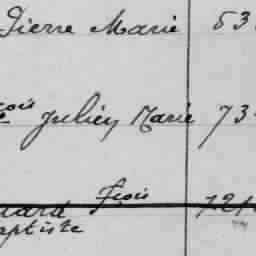 Pierre Marie 53
çois Julien Marie 73
nard Frois 721
aptiste